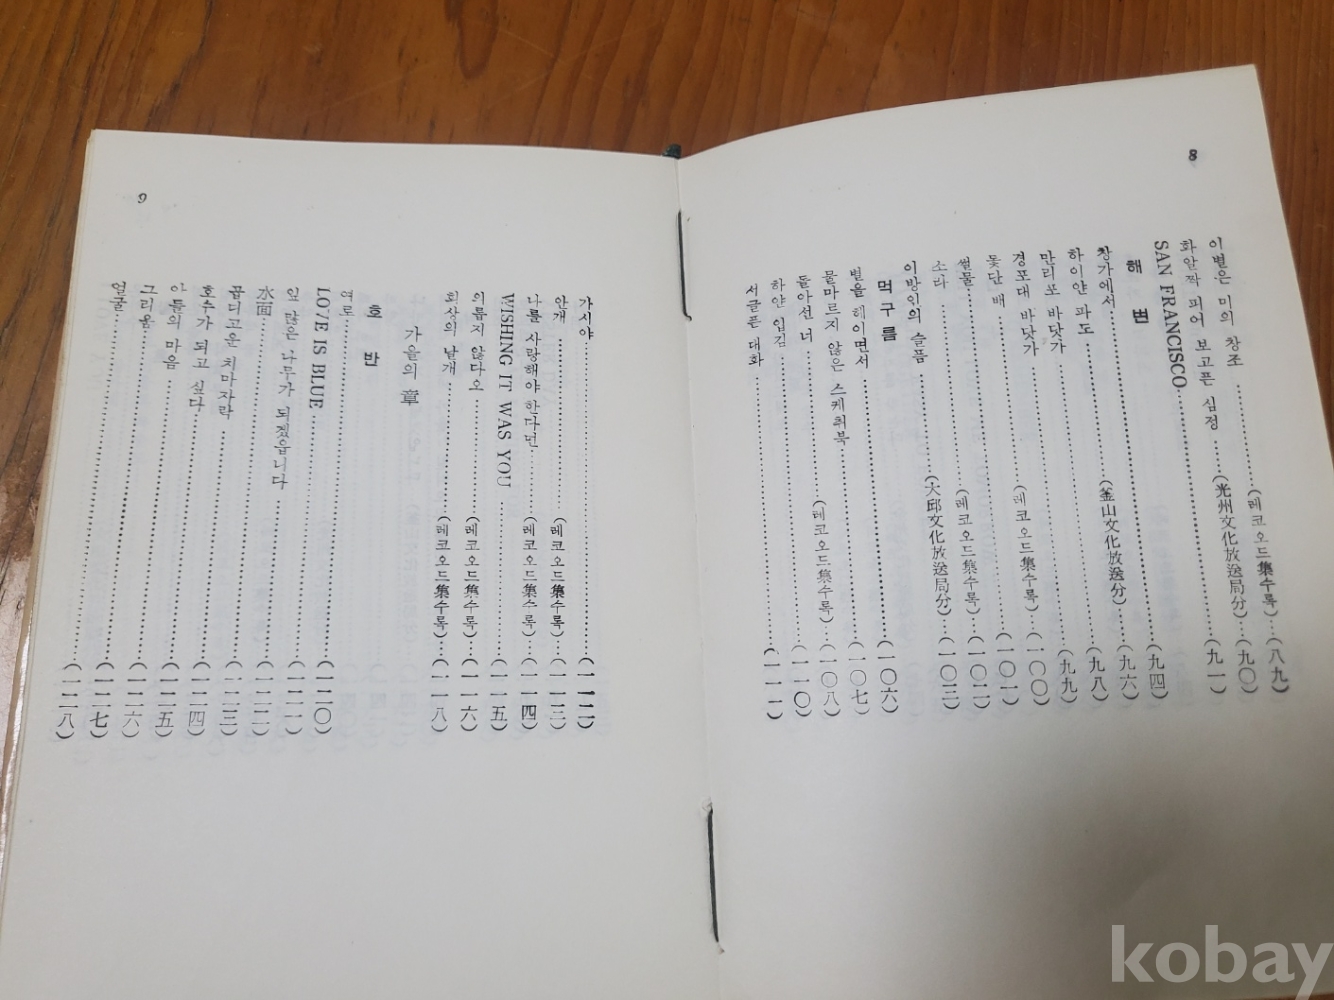 8
이별은 미의 창조 ……(레코오드集수록)…(八九)
화알짝 피어 보고픈 심정 …(光州文化放送局分)…(九〇)
SAN FRANCISCO……(九一)
해 변 ……(九四)
창가에서……(釜山文化放送分)…(九六)
하이얀 파도 ……(九八)
만리포 바닷가 ……(九九)
경포대 바닷가 ……(레코오드集수록)…(一〇〇)
돛단 배 ……(一〇一)
썰물……(레코오드集수록)…(一〇二)
소라 ……(大邱文化放送局分)…(一〇三)
이방인의 슬픔
먹구름 ……(一〇六)
별을 헤이면서 ……(一〇七)
물마르지 않은 스케취북 ……(레코오드集수록)…(一〇八)
돌아선 너 ……(一一〇)
하얀 입김
서글픈 대화 ……(一一一)
9
가시야 ……(一一二)
안개……(레코오드集수록)…(一一三)
나를 사랑해야 한다면……(레코오드集수록)…(一一四)
WISHING IT WAS YOU ……(一一五)
외롭지 않다오 ……(레코오드集수록)…(一一六)
회상의 날개 ……(레코오드集수록)…(一一八)
가을의 章
호 반
여로……
LO7E IS BLUE ……(一二〇)
잎 많은 나무가 되겠읍니다 ……(一二一)
水面……(一二二)
곱디고운 치마자락 ……(一二三)
호수가 되고 싶다……(一二四)
아들의 마음 ……(一二五)
그리움……(一二六)
얼굴……(一二七)
(一二八)
kobay